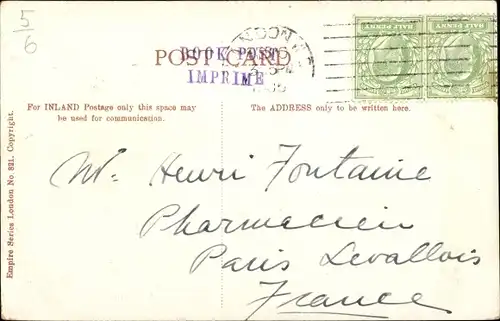 5/6
POST CARD
BOOK POST
IMPRIME
HALF PENNY
HALF PENNY
For INLAND Postage only this space may
be used for communication.
The ADDRESS only to be written here.
Empire Series London No 821. Copyright.
Mr. Henri Fontaine
Pharmacien
Paris Levallois
France